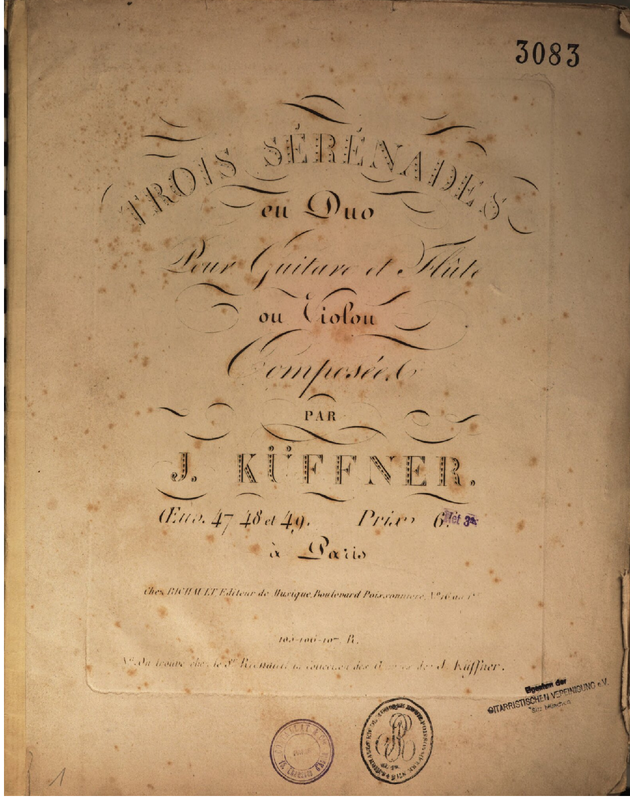 3083
TROIS SÉRÉNADES
en Duo
Pour Guitare et Flûte
ou Violon
Composées
PAR
J. KÜFFNER.
Œuv. 47 48 et 49. Prix 6.
à Paris
Chez RICHAULT Editeur de Musique, Boulevard Poissonniere, Nº 16 au 1er
105-106-107. R.
On trouve chez le Sr Richault la collection des de J. Küffner.
Eigentum der
GITARRISTISCHEN VEREINIGUNG e.V.
1